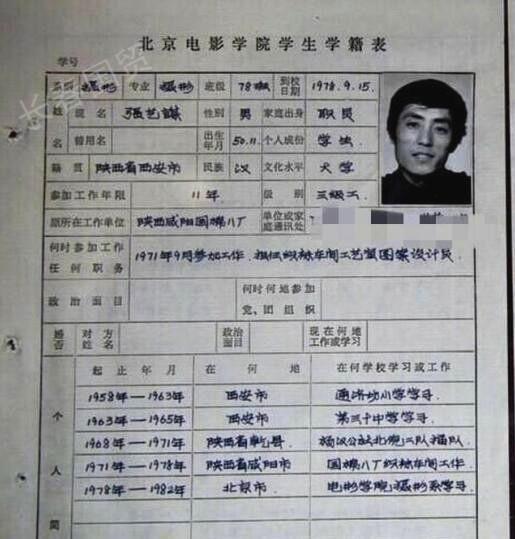 北京电影学院学生学籍表
学号
系别 摄影 专业 摄影 班级 78班 到校日期 1978.9.15.
姓 现名 张艺謀 性别 男 家庭出身 职员
名 曾用名 出生年月 50.11. 个人成份 学生
籍贯 陕西省西安市 民族 汉 文化水平 大学
参加工作年限 11年 级别 三级工
原所在工作单位 陕西咸阳国棉八厂 单位或家庭通讯处
何时参加工作任何职务 1971年9月参加工作. 担任织袜车间工艺室图案设计员.
政治面目 何时何地参加党、团组织
婚否 对方姓名 政治面目 现在何地工作或学习
起止年月 在何地 在何学校学习或工作
1958年—1963年 西安市 通济坊小学学习
1963年—1965年 西安市 第三十中学学习
1968年—1971年 陕西省乾县 杨汉公社北倪二队插队
1971年—1978年 陕西省咸阳市 国棉八厂织袜车间工作
1978年—1982年 北京市 电影学院摄影系学习
个人简